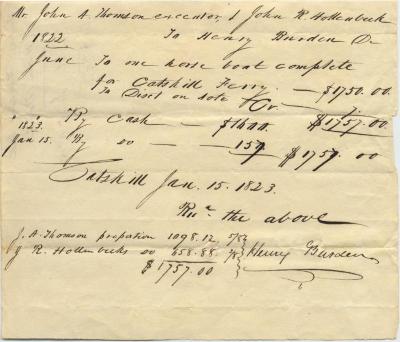 Mr John A. Thomson executor, & John R Hollenbeck
To Henry Burden Dr
1822
June To one horse boat complete
for Catskill Ferry — $1750.00
To Disct on note 7.
Cr $1757.00
" 1823 " By Cash — $1600
Jan 15. By do — 157 $1757.00
Catskill Jan. 15. 1823.
Recd the above
J. A. Thomson proportion 1098.12 5/8
J R. Hollenbecks do 658.88 3/8
Henry Burden
$1757.00